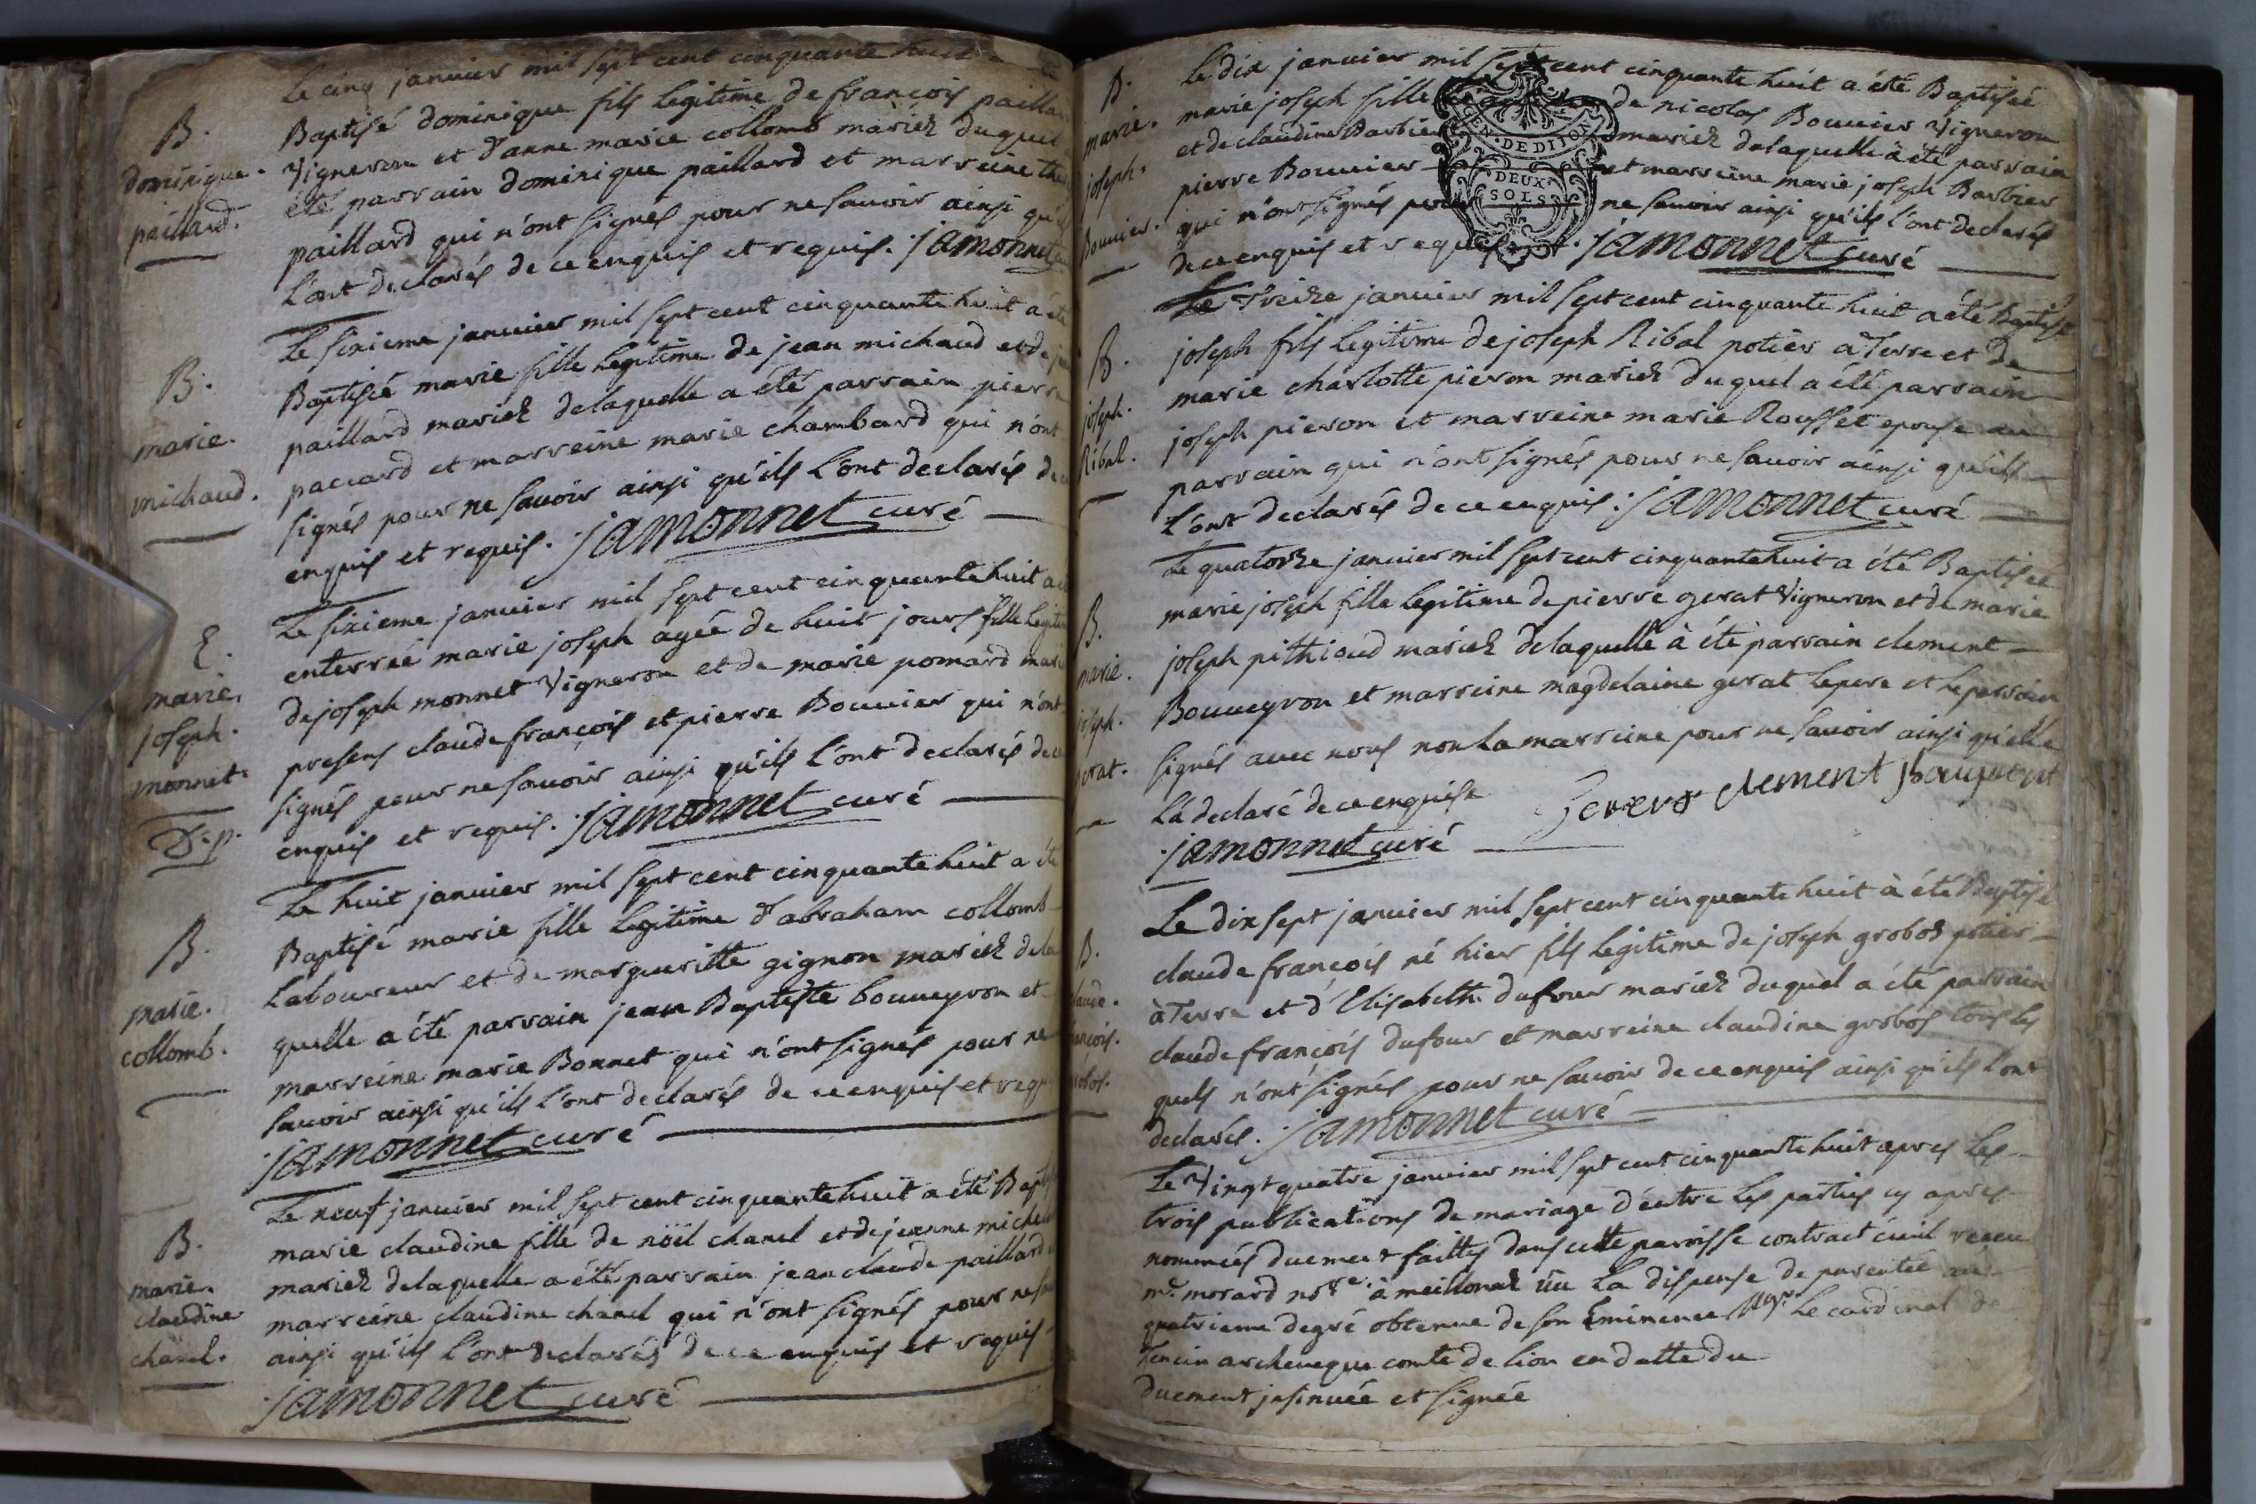 Le cinq janvier mil sept cent cinquante huit
B.
dominique.
paillard.
Baptisé dominique fils legitime de françois
Vigneron et d'anne marie collomb mariéz duquel
été parrain dominique paillard et marreine
paillard qui n'ont signés pour ne savoir ainsi
l'ont declarés de ce enquis et requis. jamonnet
B.
marie.
michaud.
Le sixieme janvier mil sept cent cinquante huit a été
Baptisée marie fille legitime de jean michaud et de
paillard mariéz delaquelle a été parrain pierre
paccard et marreine marie chambard qui n'ont
signés pour ne savoir ainsi qu'ils l'ont declarés de
enquis et requis. jamonnet curé
E.
marie.
joseph.
monnet.
Le sixieme janvier mil sept cent cinquante huit a
enterrée marie joseph agée de huit jours fille
de joseph monnet Vigneron et de marie pomard
presens claude françois et pierre Bouvier qui n'ont
signés pour ne savoir ainsi qu'ils l'ont declarés de ce
enquis et requis. jamonnet curé
B.
marie.
collomb.
Le huit janvier mil sept cent cinquante huit a été
Baptisé marie fille legitime d'abraham collomb
Laboureur et de margueritte gignon mariéz dela
quelle a été parrain jean Baptiste bouveyron et
marreine marie Bonnet qui n'ont signés pour ne
savoir ainsi qu'ils l'ont declarés de ce enquis et
jamonnet curé
B.
marie.
claudine
chanel.
Le neuf janvier mil sept cent cinquante huit a été
marie claudine fille de nöil chanel et de jeanne
mariéz delaquelle a été parrain jean claude paillard
marreine claudine chanel qui n'ont signés pour ne
ainsi qu'ils l'ont declarés de ce enquis et requis
jamonnet curé
B.
marie.
joseph.
Bouvier.
Le dix janvier mil sept cent cinquante huit a été Baptisée
marie joseph fille de nicolas Bouvier Vigneron
et de claudine Barbier mariéz delaquelle a été parrain
pierre Bouvier et marreine marie joseph Barbier
qui n'ont signés pour ne savoir ainsi qu'ils l'ont declarés
de ce enquis et requis. jamonnet curé
GEN. DE DIJON
DEUX
SOLS
B.
joseph.
Ribal.
Le Treize janvier mil sept cent cinquante huit a été Baptisé
joseph fils legitime de joseph Ribal potier à Terre et de
marie charlotte pieron mariéz duquel a été parrain
joseph pieron et marreine marie Rousset epouse au
parrain qui n'ont signés pour ne savoir ainsi qu'ils
l'ont declarés de ce enquis. jamonnet curé
B.
marie.
joseph.
gerat.
Le quatorze janvier mil sept cent cinquante huit a été Baptisée
marie joseph fille legitime de pierre gerat Vigneron et de marie
joseph pithioud mariéz delaquelle à été parrain clement
Bouveyron et marreine magdelaine gerat le pere et le parrain
signés avec nous non la marreine pour ne savoir ainsi qu'elle
l'a declaré de ce enquise clement
jamonnet curé
B.
Le dix sept janvier mil sept cent cinquante huit à été Baptisé
claude françois né hier fils legitime de joseph grobos potier
à Terre et d'Elisabeth dufour mariéz duquel a été parrain
claude françois dufour et marreine claudine grobos tous les
quels n'ont signés pour ne savoir de ce enquis ainsi qu'ils l'ont
declarés. jamonnet curé
Le Vingt quatre janvier mil sept cent cinquante huit apres les
trois publications de mariage d'entre les parties cy apres
nommées duement faittes dans cette paroisse contract civil receu
me. morard nore. à meillonaz vüe la dispense de parentée au
quatrieme degré obtenue de son Eminence Mgr Le cardinal de
Tencin archeveque comte de lion en datte du
duement insinuée et signée